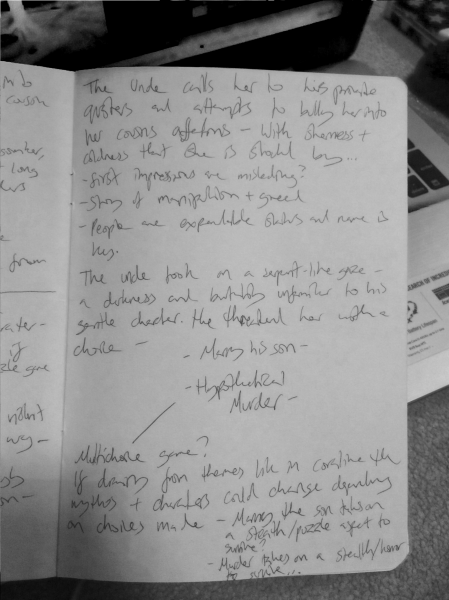 The Uncle calls her to his private
quarters and attempts to bully her into
her cousins affections - With sternness +
coldness that she is shocked by...
- First impressions are misleading?
- Story of manipulation + greed
- People are expendable status and name is
key.
The uncle took on a serpent-like gaze -
a darkness and brutality unfamiliar to his
gentle character. He threatened her with a
choice -
- Marry his son -
- Hypothetical
Murder -
Multichoice game?
If drawing from themes like in Coraline the
mythos + characters could change depending
on choices made - Marrying the son takes on
a stealth/puzzle aspect to
survive?
- Murder takes on a stealth/horror
to survive...
from
if
violent
way -